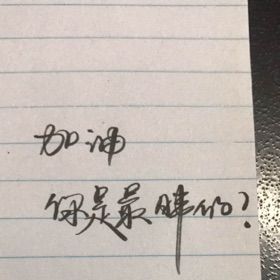 加油
你是最胖的?